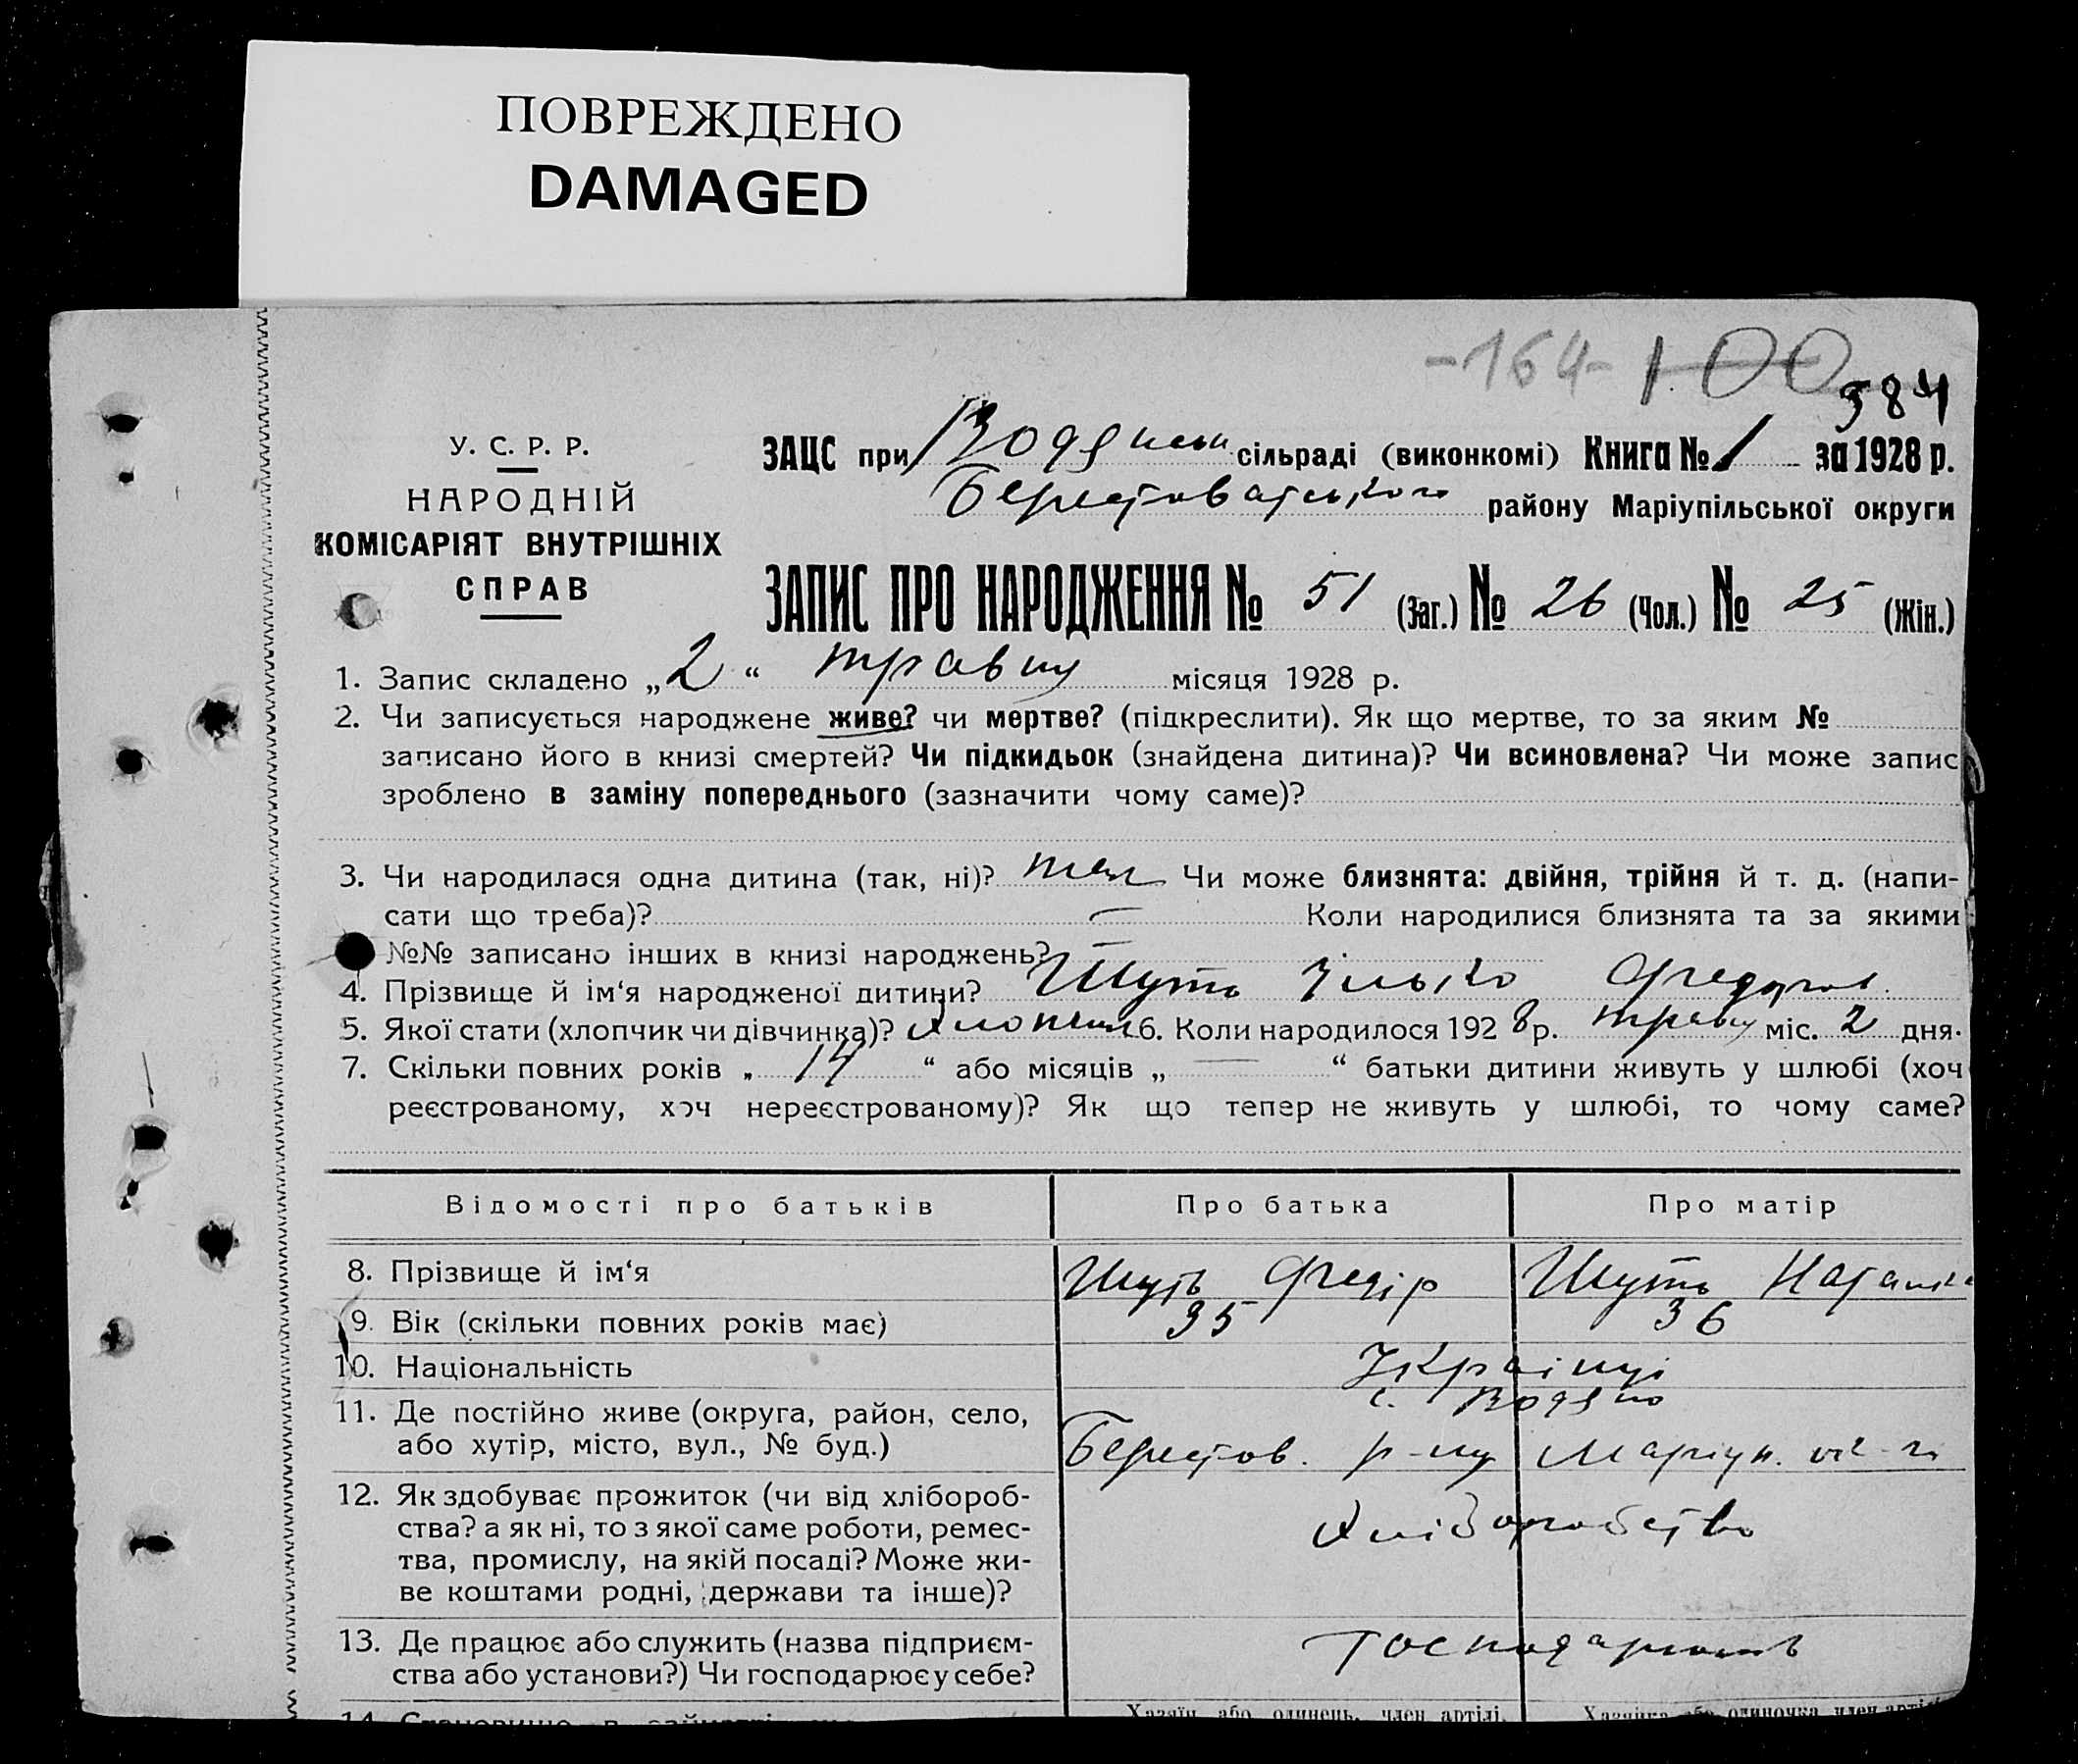 ПОВРЕЖДЕНО
DAMAGED
-164- 100
584
У. С. Р. Р.
НАРОДНІЙ
КОМІСАРІЯТ ВНУТРІШНІХ
СПРАВ
ЗАЦС при Водянськ сільраді (виконкомі) Книга № 1 за 1928 р.
Берестоватського району Маріупільської округи
ЗАПИС ПРО НАРОДЖЕННЯ № 51 (Заг.) № 26 (Чол.) № 25 (Жін.)
1. Запис складено „2“ травня місяця 1928 р.
2. Чи записується народжене живе? чи мертве? (підкреслити). Як що мертве, то за яким №
записано його в книзі смертей? Чи підкидьок (знайдена дитина)? Чи всиновлена? Чи може запис
зроблено в заміну попереднього (зазначити чому саме)?
3. Чи народилася одна дитина (так, ні)? так Чи може близнята: двійня, трійня й т. д. (напи-
сати що треба)? — Коли народилися близнята та за якими
№№ записано інших в книзі народжень? —
4. Прізвище й ім‘я народженої дитини? Шуть Ілько Федоров.
5. Якої стати (хлопчик чи дівчинка)? хлопчик 6. Коли народилось 1928 р. травня міс. 2 дня.
7. Скільки повних років „14“ або місяців „—“ батьки дитини живуть у шлюбі (хоч
реєстрованому, хоч нереєстрованому)? Як що тепер не живуть у шлюбі, то чому саме?
Відомості про батьків Про батька Про матір
8. Прізвище й ім‘я Шуть Федір Шуть
9. Вік (скільки повних років має) 35 36
10. Національність Українці
11. Де постійно живе (округа, район, село, с. Водяно
або хутір, місто, вул., № буд.) Берестов. р-ну Маріуп. ок-ги
12. Як здобуває прожиток (чи від хлібороб-
ства? а як ні, то з якої саме роботи, ремес- Хліборобство
тва, промислу, на якій посаді? Може жи-
ве коштами родні, держави та інше)?
13. Де працює або служить (назва підприєм-
ства або установи?) Чи господарює у себе?
Хазяїн або одинець, член артілі,